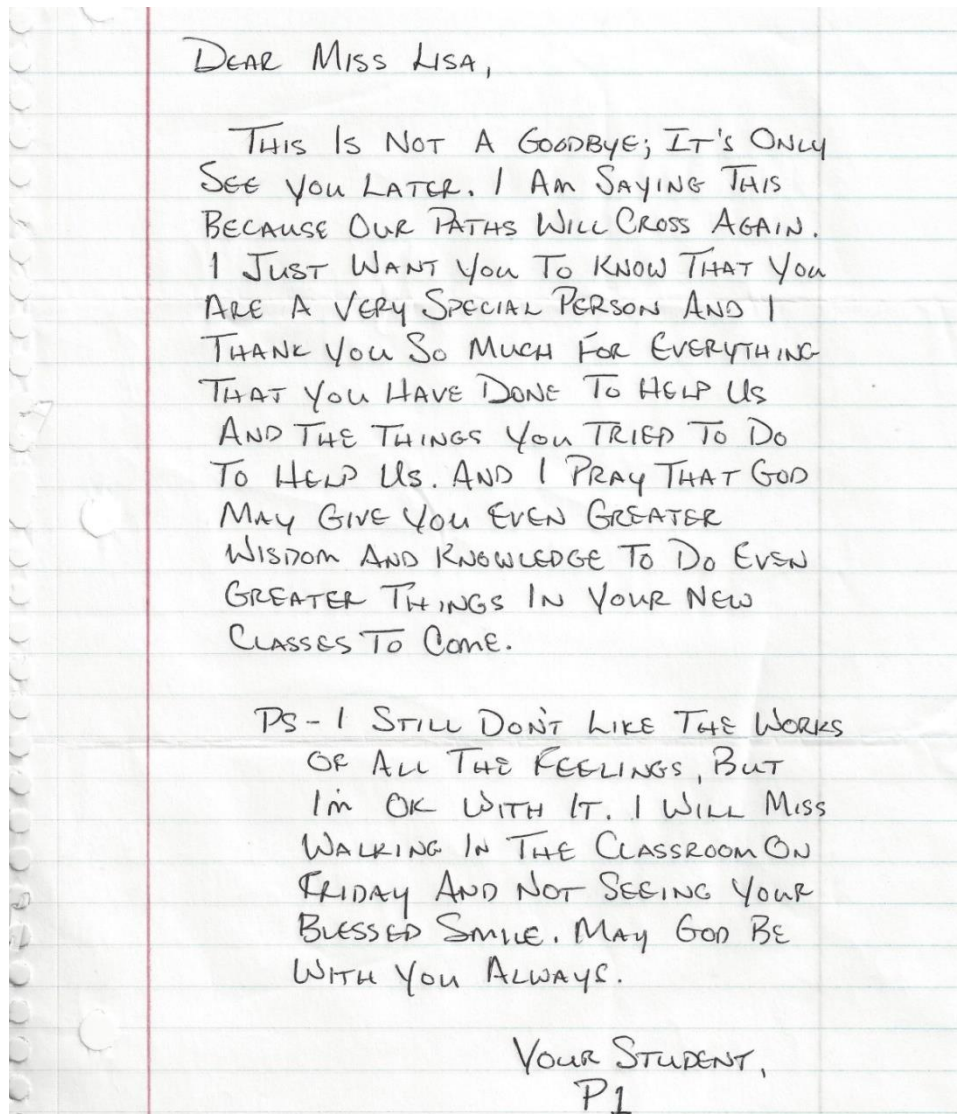 Dear Miss Lisa,
This Is Not A Goodbye; It's Only
See You Later. I Am Saying This
Because Our Paths Will Cross Again.
I Just Want You To Know That You
Are A Very Special Person And I
Thank You So Much For Everything
That You Have Done To Help Us
And The Things You Tried To Do
To Help Us. And I Pray That God
May Give You Even Greater
Wisdom And Knowledge To Do Even
Greater Things In Your New
Classes To Come.
PS - I Still Don't Like The Works
Of All The Feelings, But
I'm OK With It. I Will Miss
Walking In The Classroom On
Friday And Not Seeing Your
Blessed Smile. May God Be
With You Always.
Your Student,
P1